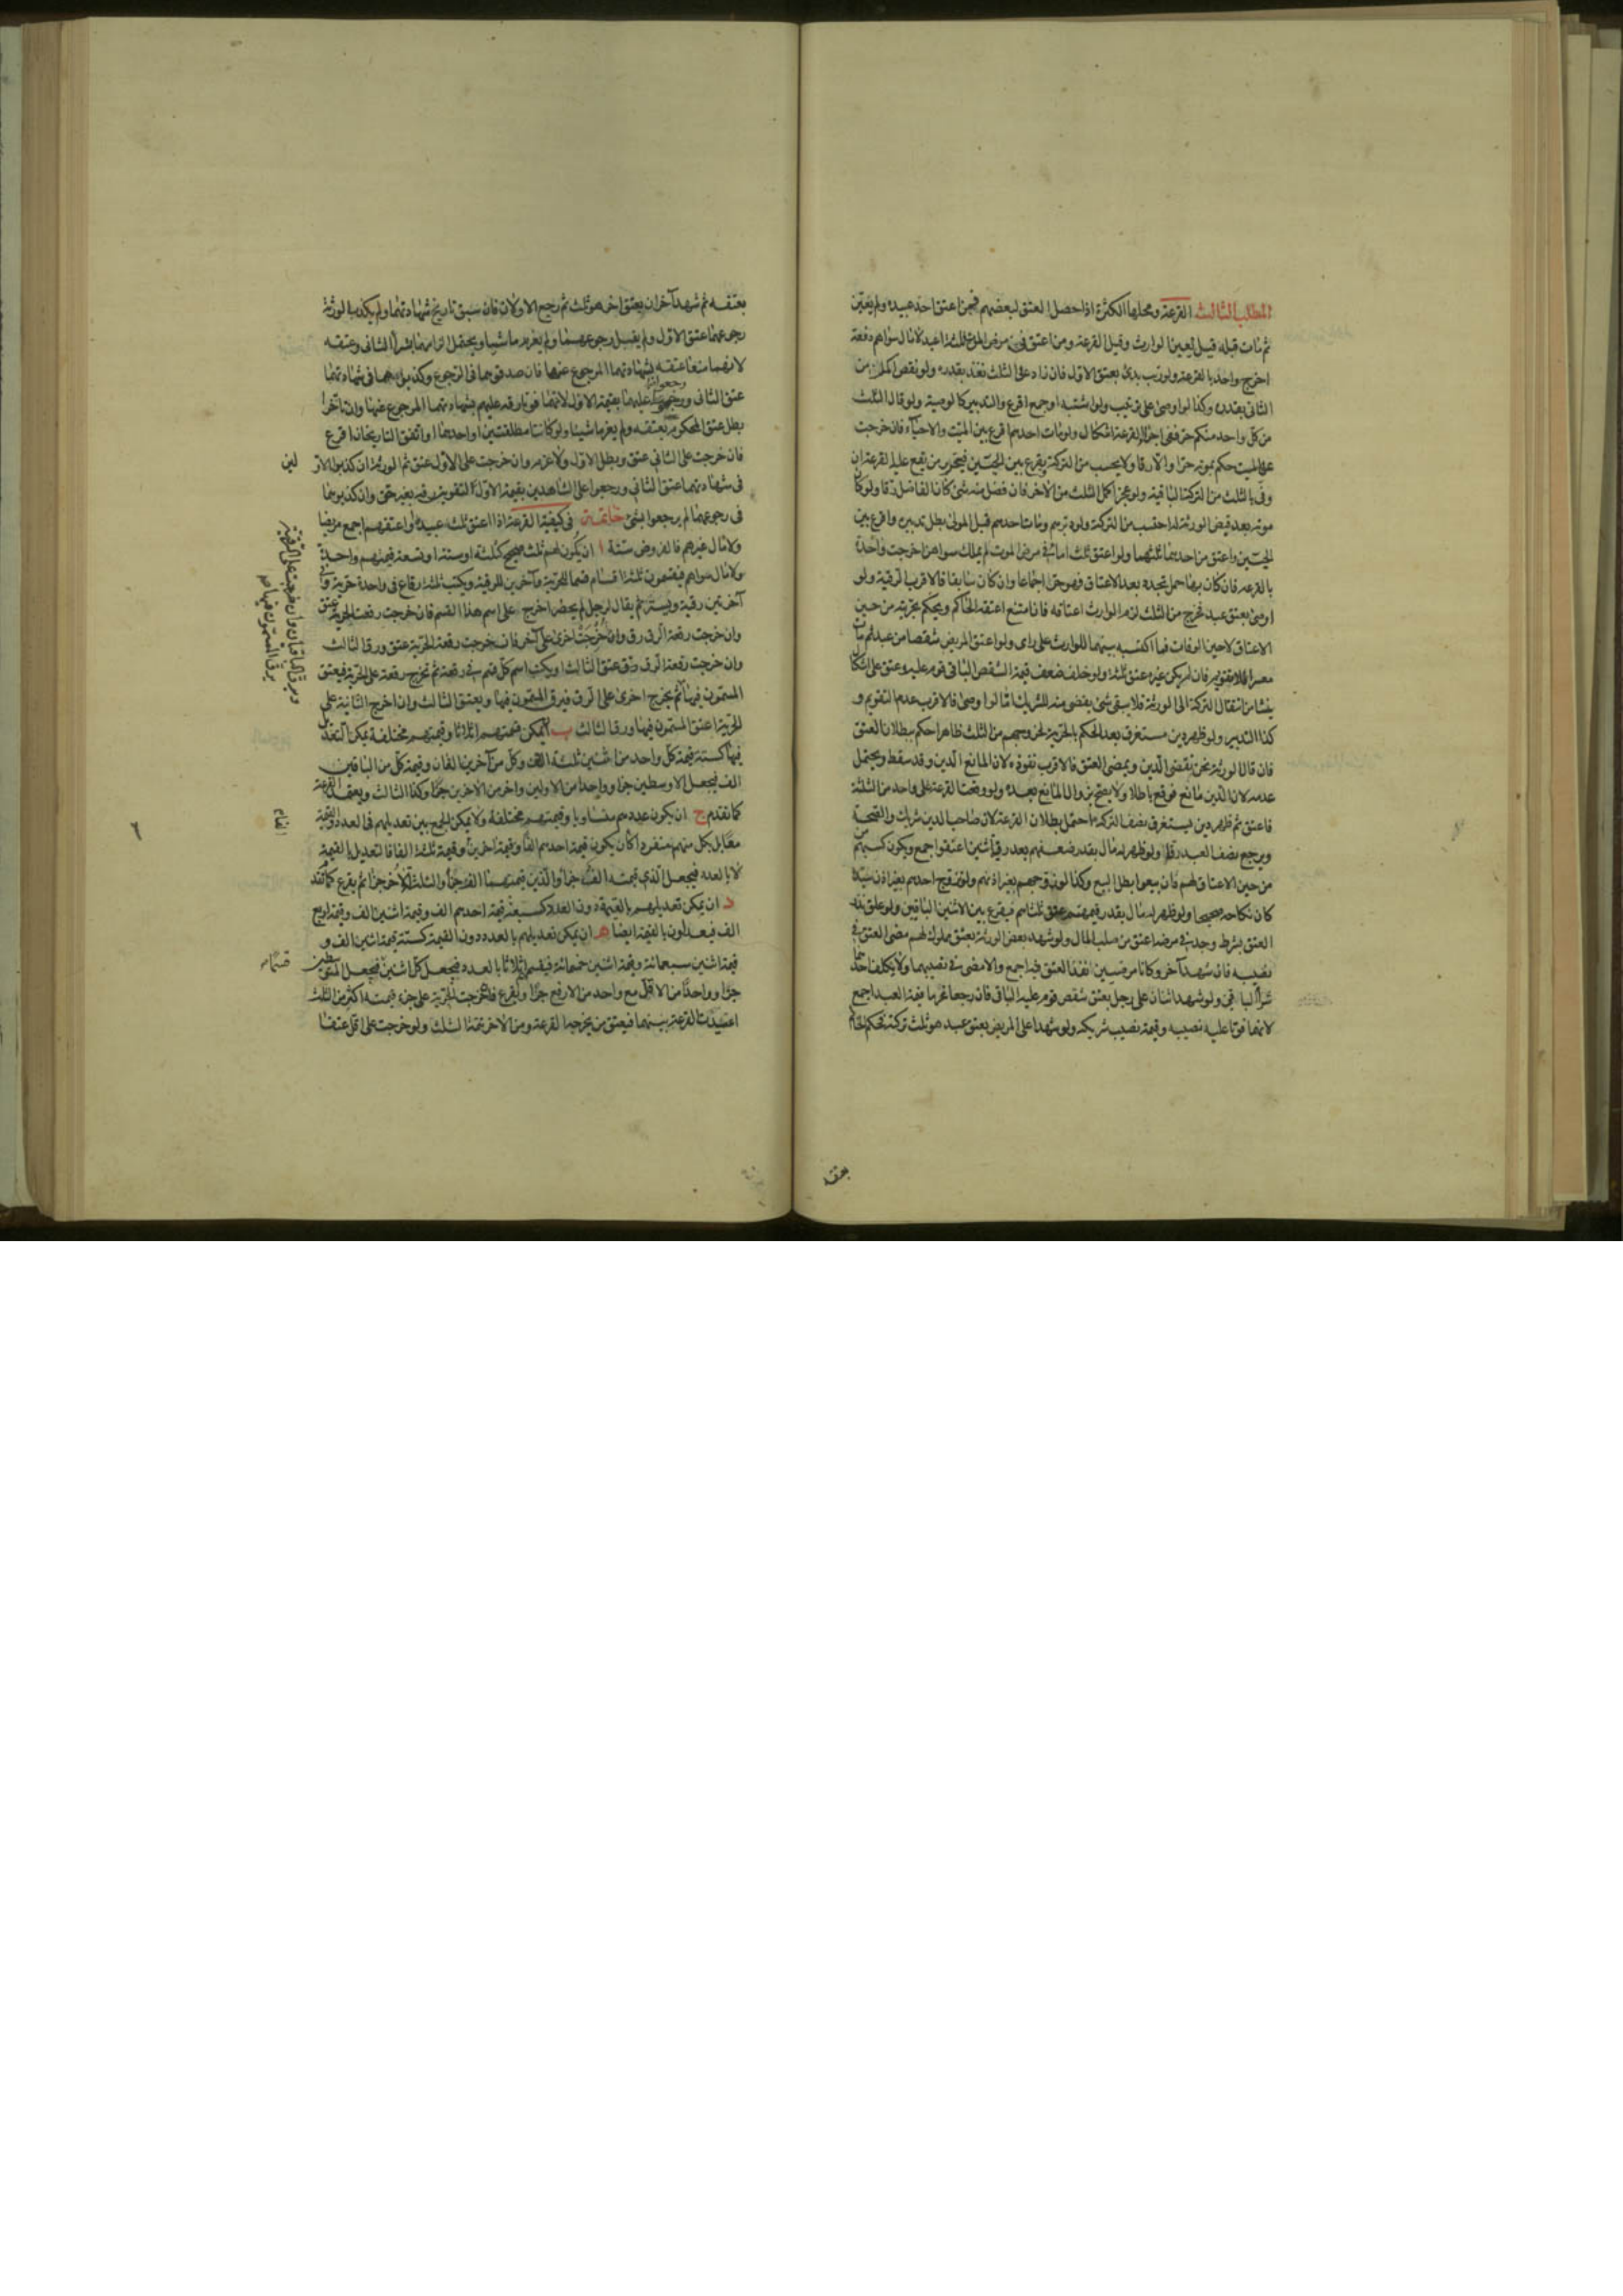 المطلب الثالث القرعة ومحلها الكثرة اذا حصل العتق لبعضهم فمن اعتق احد عبيده ولم يعين
ثم مات قبله قيل يعين الوارث وقيل القرعة ومن اعتق في مرض الموت ثلثة اعبد لا مال سواهم دفعة
اخرج واحد بالقرعة ولو رتب بدئ بعتق الاول فان زاد على الثلث نفذ بقدره ولو نقص اكمل من
الثاني بقدره وكذا لو اوصى على ترتيب ولو اشتبه او جمع اقرع والتدبير كالوصية ولو قال الثلث
من كل واحد منكم حر ففي اجراء القرعة اشكال ولو مات احدهم اقرع بين الميت والاحياء فان خرجت
على الميت حكم بموته حرا والا رقا ولا يحسب من التركة ويقرع بين الحيين فيتحرر من تقع عليه القرعة ان
وفى بالثلث من التركة الباقية ولو عجز اكمل الثلث من الاخر فان فضل منه شئ كان الفاضل رقا ولو كان
موته بعد قبض الورثة له احتسب من التركة ولو دبرهم ومات احدهم قبل المولى بطل تدبيره واقرع بين
الحيين واعتق من احدهما ثلثهما ولو اعتق ثلث اماء في مرض الموت لم يملك سواهن اخرجت واحدة
بالقرعة فان كان بها حمل تجدد بعد الاعتاق فهو حر اجماعا وان كان سابقا فالاقرب الرقية ولو
اوصى بعتق عبد يخرج من الثلث لزم الوارث اعتاقه فان امتنع اعتقه الحاكم ويحكم بحريته من حين
الاعتاق لا حين الوفات فما اكتسبه بينهما للوارث على راى ولو اعتق المريض شقصا من عبد ثم مات
معسرا فلا تقويم فان لم يكن غيره عتق ثلثه ولو خلف ضعف قيمة الشقص الباقي قوم عليه وعتق على اشكال
ينشا من انتقال التركة الى الورثة فلا يبقى شئ يقضى منه للشريك اما لو اوصى فالاقرب عدم التقويم و
كذا التدبير ولو ظهر دين مستغرق بعد الحكم بالحرية لخروجهم من الثلث ظاهرا حكم ببطلان العتق
فان قال الورثة نحن نقضي الدين ونمضى العتق فالاقرب نفوذه لان المانع الدين وقد سقط ويحتمل
عدمه لان الدين مانع فوقع باطلا ولا يصح بزوال المانع بعده ولو وقعت القرعة على واحد من الثلثة
فاعتق ثم ظهر دين يستغرق نصف التركة احتمل بطلان القرعة لان صاحب الدين شريك والصحة
ويرجع نصف العبد رقا ولو ظهر له مال بقدر ضعفهم بعد رق اثنين اعتقوا اجمع ويكون كسبهم
من حين الاعتاق لهم فان بيعوا بطل البيع وكذا لو زوجهم بغير اذنهم ولو تزوج احدهم بغير اذن سيده
كان نكاحه صحيحا ولو ظهر له مال بقدر قيمتهم عتق ثلثاهم فيقرع بين الاثنين الباقيين ولو علق نذر
العتق بشرط وجد في مرضه اعتق من صلب المال ولو شهد بعض الورثة بعتق مملوك لهم مضى العتق في
نصيبه فان شهد آخر وكانا مرضيين نفذ العتق فيه اجمع والا مضى في نصيبهما ولا يكلف احدهما
شراء الباقي ولو شهد اثنان على رجل بعتق شقص قوم عليه الباقي فان رجعا غرما قيمة العبد اجمع
لانهما فوتا عليه نصيبه وقيمة نصيب شريكه ولو شهدا على المريض بعتق عبد هو ثلث تركته فحكم الحاكم
بعتقه
بعتقه ثم شهد آخران بعتق اخر هو ثلث ثم رجع الاولان فان سبق تاريخ شهادتهما ولم يكذب الورثة
رجوعهما عتق الاول ولم يقبل رجوعهما ولم يغرما شيئا ويحتمل الزامهما بشراء الثاني وعتقه
لانهما منعا عتقه بشهادتهما المرجوع عنها فان صدقوهما في الرجوع وكذبوهما في شهادتهما
عتق الثاني ورجعوا عليهما بقيمة الاول لانهما فوتا رقه عليهم بشهادتهما المرجوع عنها وان تاخرا
بطل عتق المحكوم بعتقه ولم يغرما شيئا ولو كانتا مطلقتين او احدهما او اتفق التاريخان اقرع
فان خرجت على الثاني عتق وبطل الاول ولا غرم وان خرجت على الاول عتق ثم الورثة ان كذبوا الاو
لين
في شهادتهما عتق الثاني ورجعوا على الشاهدين بقيمة الاول لتفويتهما رقيه بغير حق وان كذبوهما
في رجوعهما لم يرجعوا بشئ خاتمة في كيفية القرعة اذا اعتق ثلث عبيده او اعتقهم اجمع مريضا
ولا مال غيرهم فالفروض ستة ا ان يكون لهم ثلث صحيح كثلثة او ستة او تسعة قيمتهم واحدة
ولا مال سواهم فيقسمون ثلثة اقسام قسما للحرية وآخرين للرقية ويكتب ثلث رقاع في واحدة حرية وفي
آخرتين رقية ويستر ثم يقال لرجل لم يحضر اخرج على اسم هذا القسم فان خرجت رقعة الحرية عتق
وان خرجت رقعة الرق رق وان خرجت اخرى على آخر فان خرجت رقعة الحرية عتق ورق الثالث
وان خرجت رقعة الرق رق وعتق الثالث او يكتب اسم كل قسم في رقعة ثم تخرج رقعة على الحرية فيعتق
المسمون فيها ثم يخرج اخرى على الرق فيرق المسمون فيها ويعتق الثالث وان اخرج الثانية على
الحرية اعتق المسمون فيها ورق الثالث ب يمكن قسمتهم اثلاثا وقيمتهم مختلفة يمكن التعديل
فيها كستة قيمة كل واحد من اثنين ثلثة الاف وكل من آخرين الفان وقيمة كل من الباقين
الف فيجعل الاوسطين جزء وواحدا من الاولين واخر من الاخرين جزءا وكذا الثالث ويعتمد القرعة
كما تقدم ج ان يكون عددهم متساويا وقيمتهم مختلفة ولا يمكن الجمع بين تعديلهم في العدد والقيمة
معا بل بكل منهم منفردا كان يكون قيمة احدهم الفا وقيمة اخرين وقيمة ثلثة الفا فالتعديل بالقيمة
الفا
لا بالعدد فيجعل الذي قيمته الف جزءا والذين قيمتهما الف جزءا والثلث الاخر جزءا ثم يقرع كما تقدم
د ان يمكن تعديلهم بالقيمة دون العدد كسبعة قيمة احدهم الف وقيمة اثنين الف وقيمة اربع
الف فيعدلون بالقيمة ايضا ه ان يمكن تعديلهم بالعدد دون القيمة كستة قيمة اثنين الف و
قيمة اثنين سبعمائة وقيمة اثنين خمسمائة فيقسم اثلاثا بالعدد فيجعل كل اثنين فيجعل المتوسطين
جزءا وواحدا من الاقل مع واحد من الارفع جزءا ويقرع فان خرجت الحرية على جزء قيمته اكثر من الثلث
اعيدت القرعة بينهما فيعتق من يخرجه القرعة ومن الاخر تتمة الثلث ولو خرجت على اقل عتقا
٦